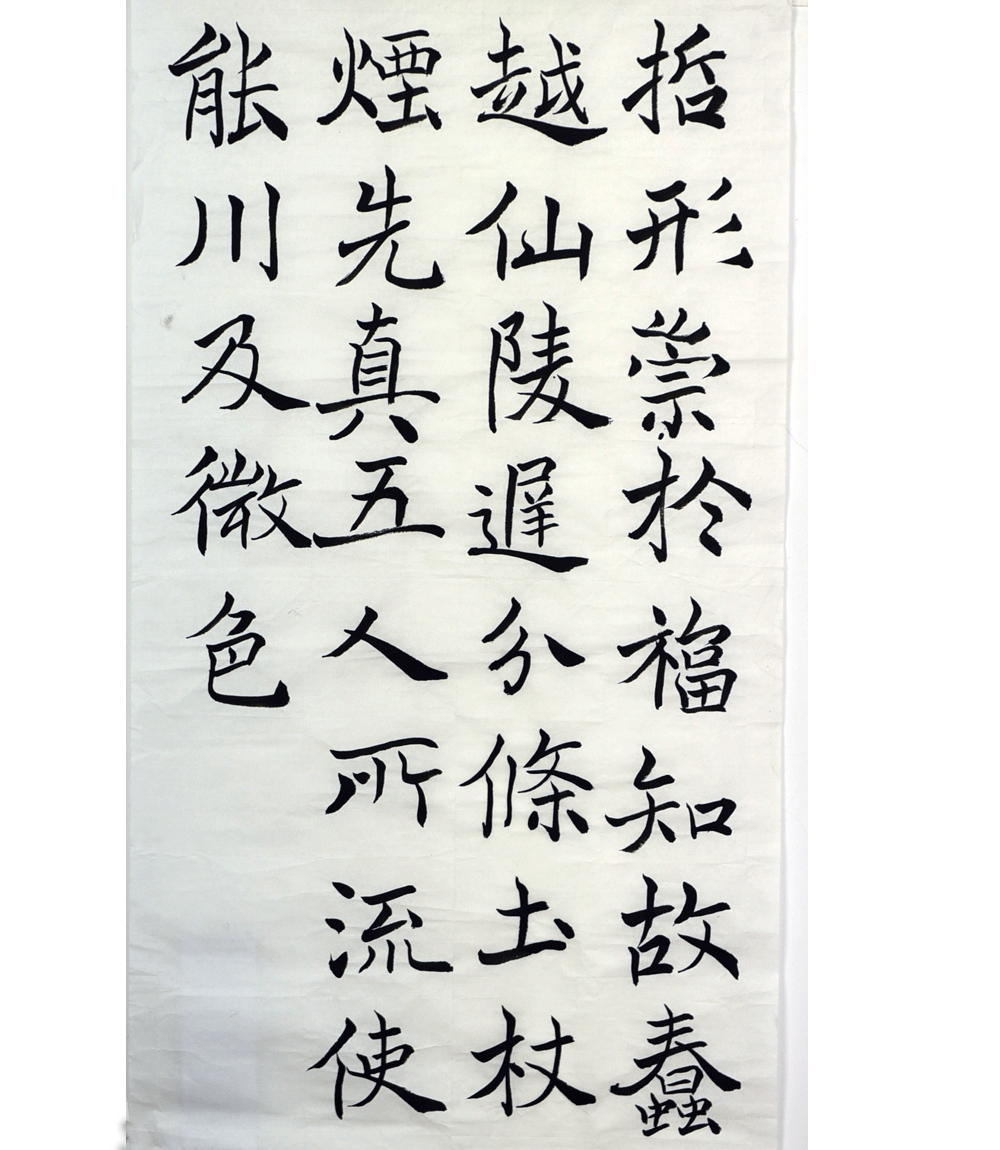 哲形崇於福知故蠢
越仙陵遲分條土杖
煙先真五人所流使
能川及微色